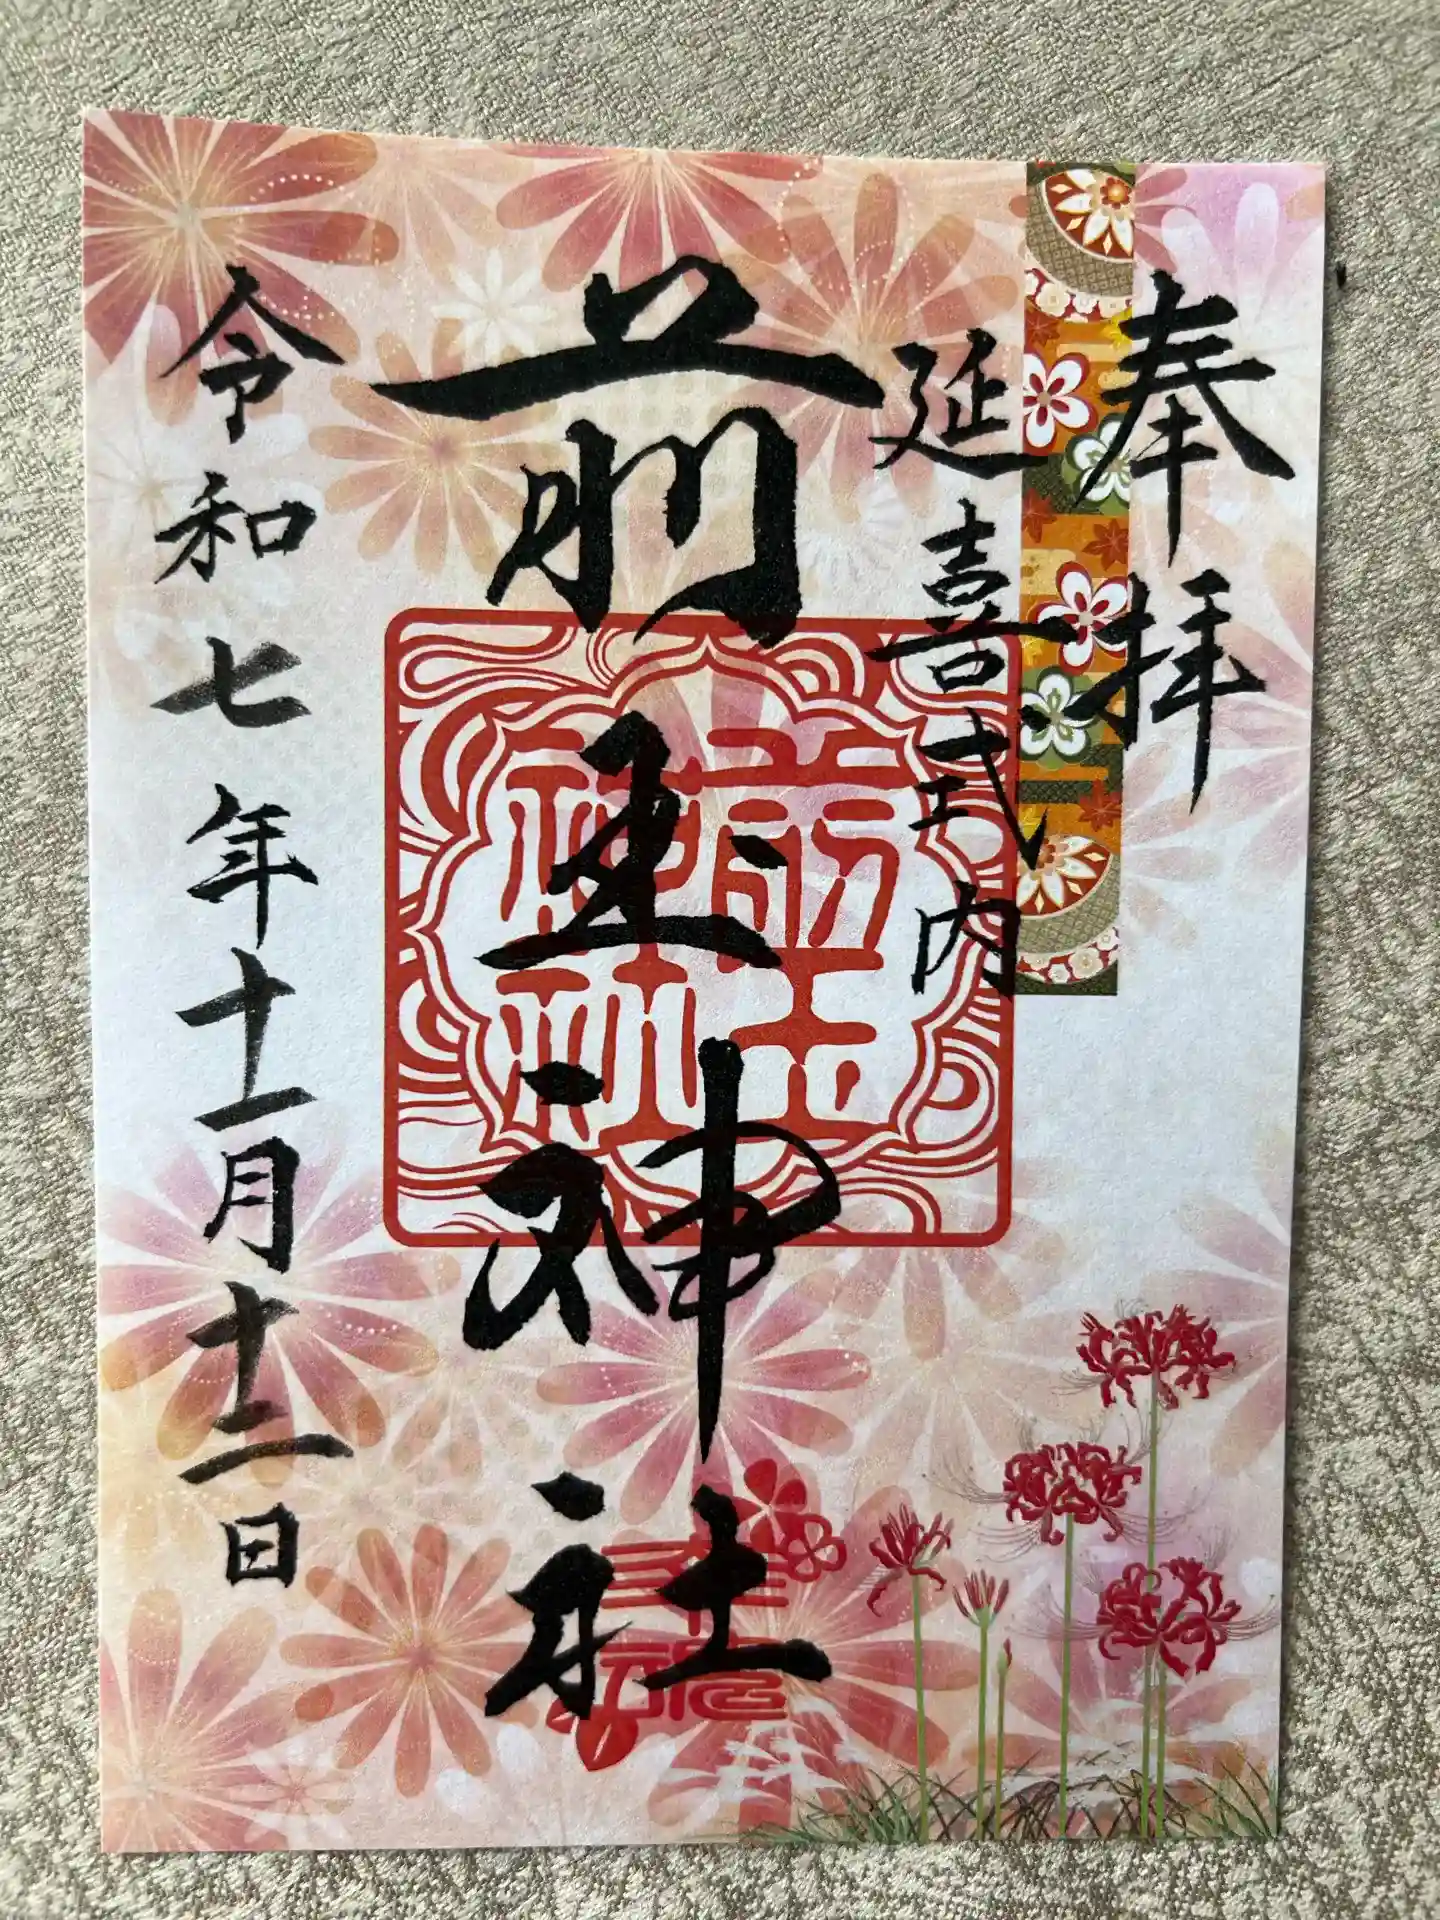 奉拝
延喜式内
前玉神社
前玉神社
令和七年十一月十二日